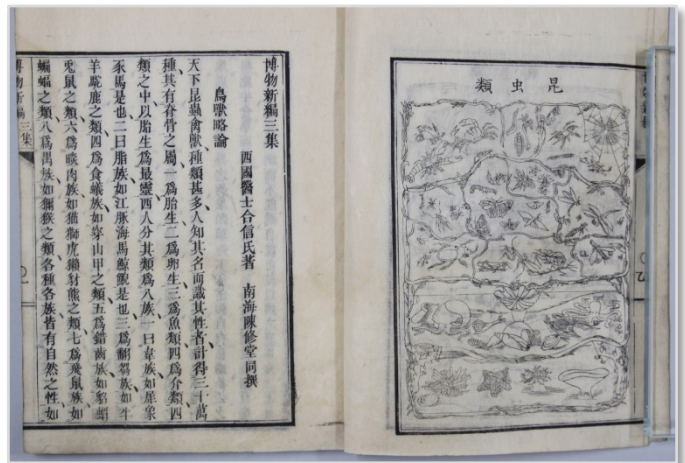 昆虫類
博物新編三集
鳥獸略論
西國醫士合信氏著 南海陳修堂同撰
天下昆蟲禽獸種類甚多人知其名而識其性者計得三十萬
種其有脊骨之屬一爲胎生二爲卵生三爲魚類四爲介類四
類之中以胎生爲最靈西人分其類爲八族一曰韋族如犀象
豕馬是也二曰脂族如江豚海馬鯨鯢是也三爲翻芻族如牛
羊駝鹿之類四爲食蟻族如穿山甲之類五爲錯齒族如貂
兎鼠之類六爲啖肉族如猫獅虎獺豺熊之類七爲飛鼠族如
蝙蝠之類八爲禺族如獼猴之類各種各族皆有自然之性如
博物新編 三集